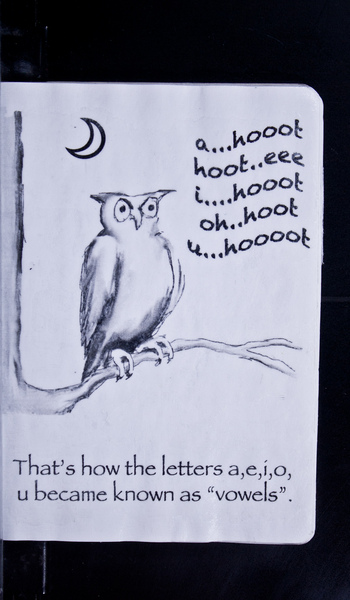 a...hooot
hoot..eee
i....hooot
oh..hoot
u...hoooot
That's how the letters a,e,i,o,
u became known as “vowels”.